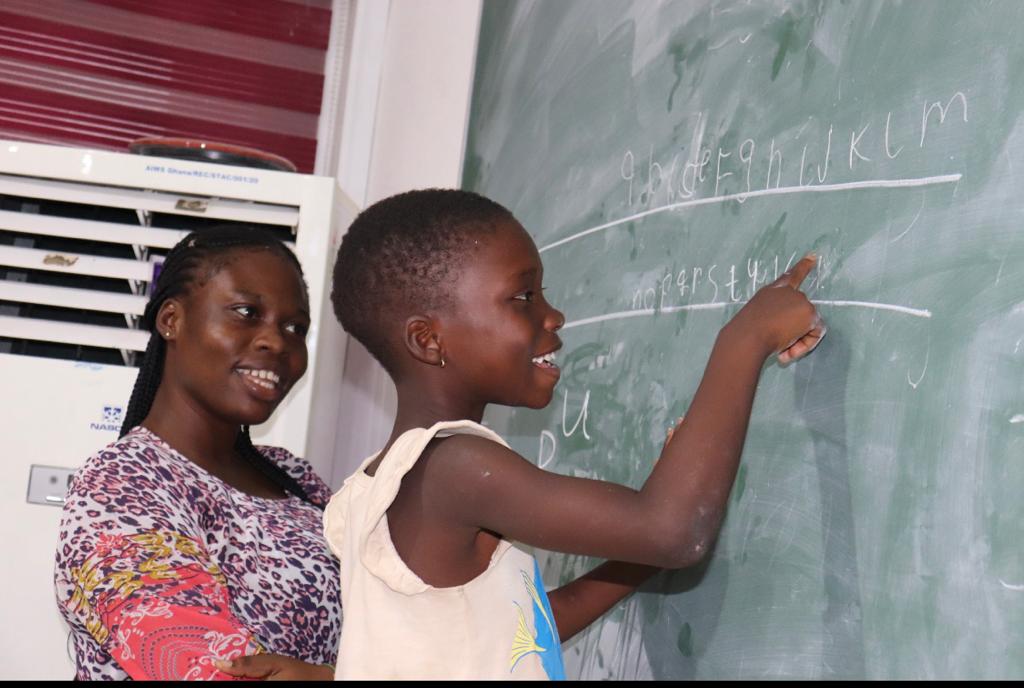 AIMS Ghana/REC/STAC/001/20
a b c d e F g h i J K l m
n o p q r s t
U
D